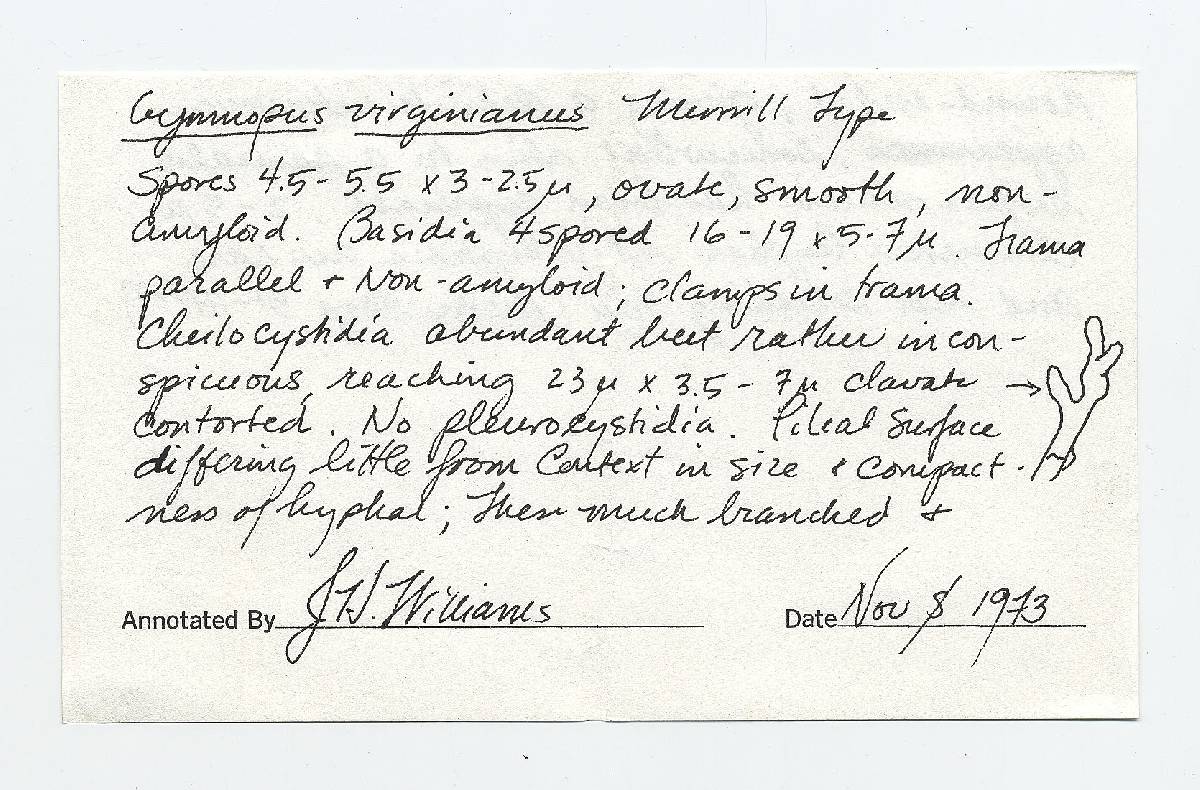 Gymnopus virginianus Murrill Type
Spores 4.5 - 5.5 x 3 - 2.5 μ, ovate, smooth, non-
amyloid. Basidia 4 spored 16 - 19 x 5 - 7 μ. Trama
parallel + Non-amyloid; clamps in trama.
Cheilocystidia abundant but rather incon-
spicuous, reaching 23 μ x 3.5 - 7 μ clavate →
contorted. No pleurocystidia. Pileal Surface
differing little from Context in size & compact-
ness of hyphae; these much branched +
Annotated By J. H. Williams Date Nov 8 1973